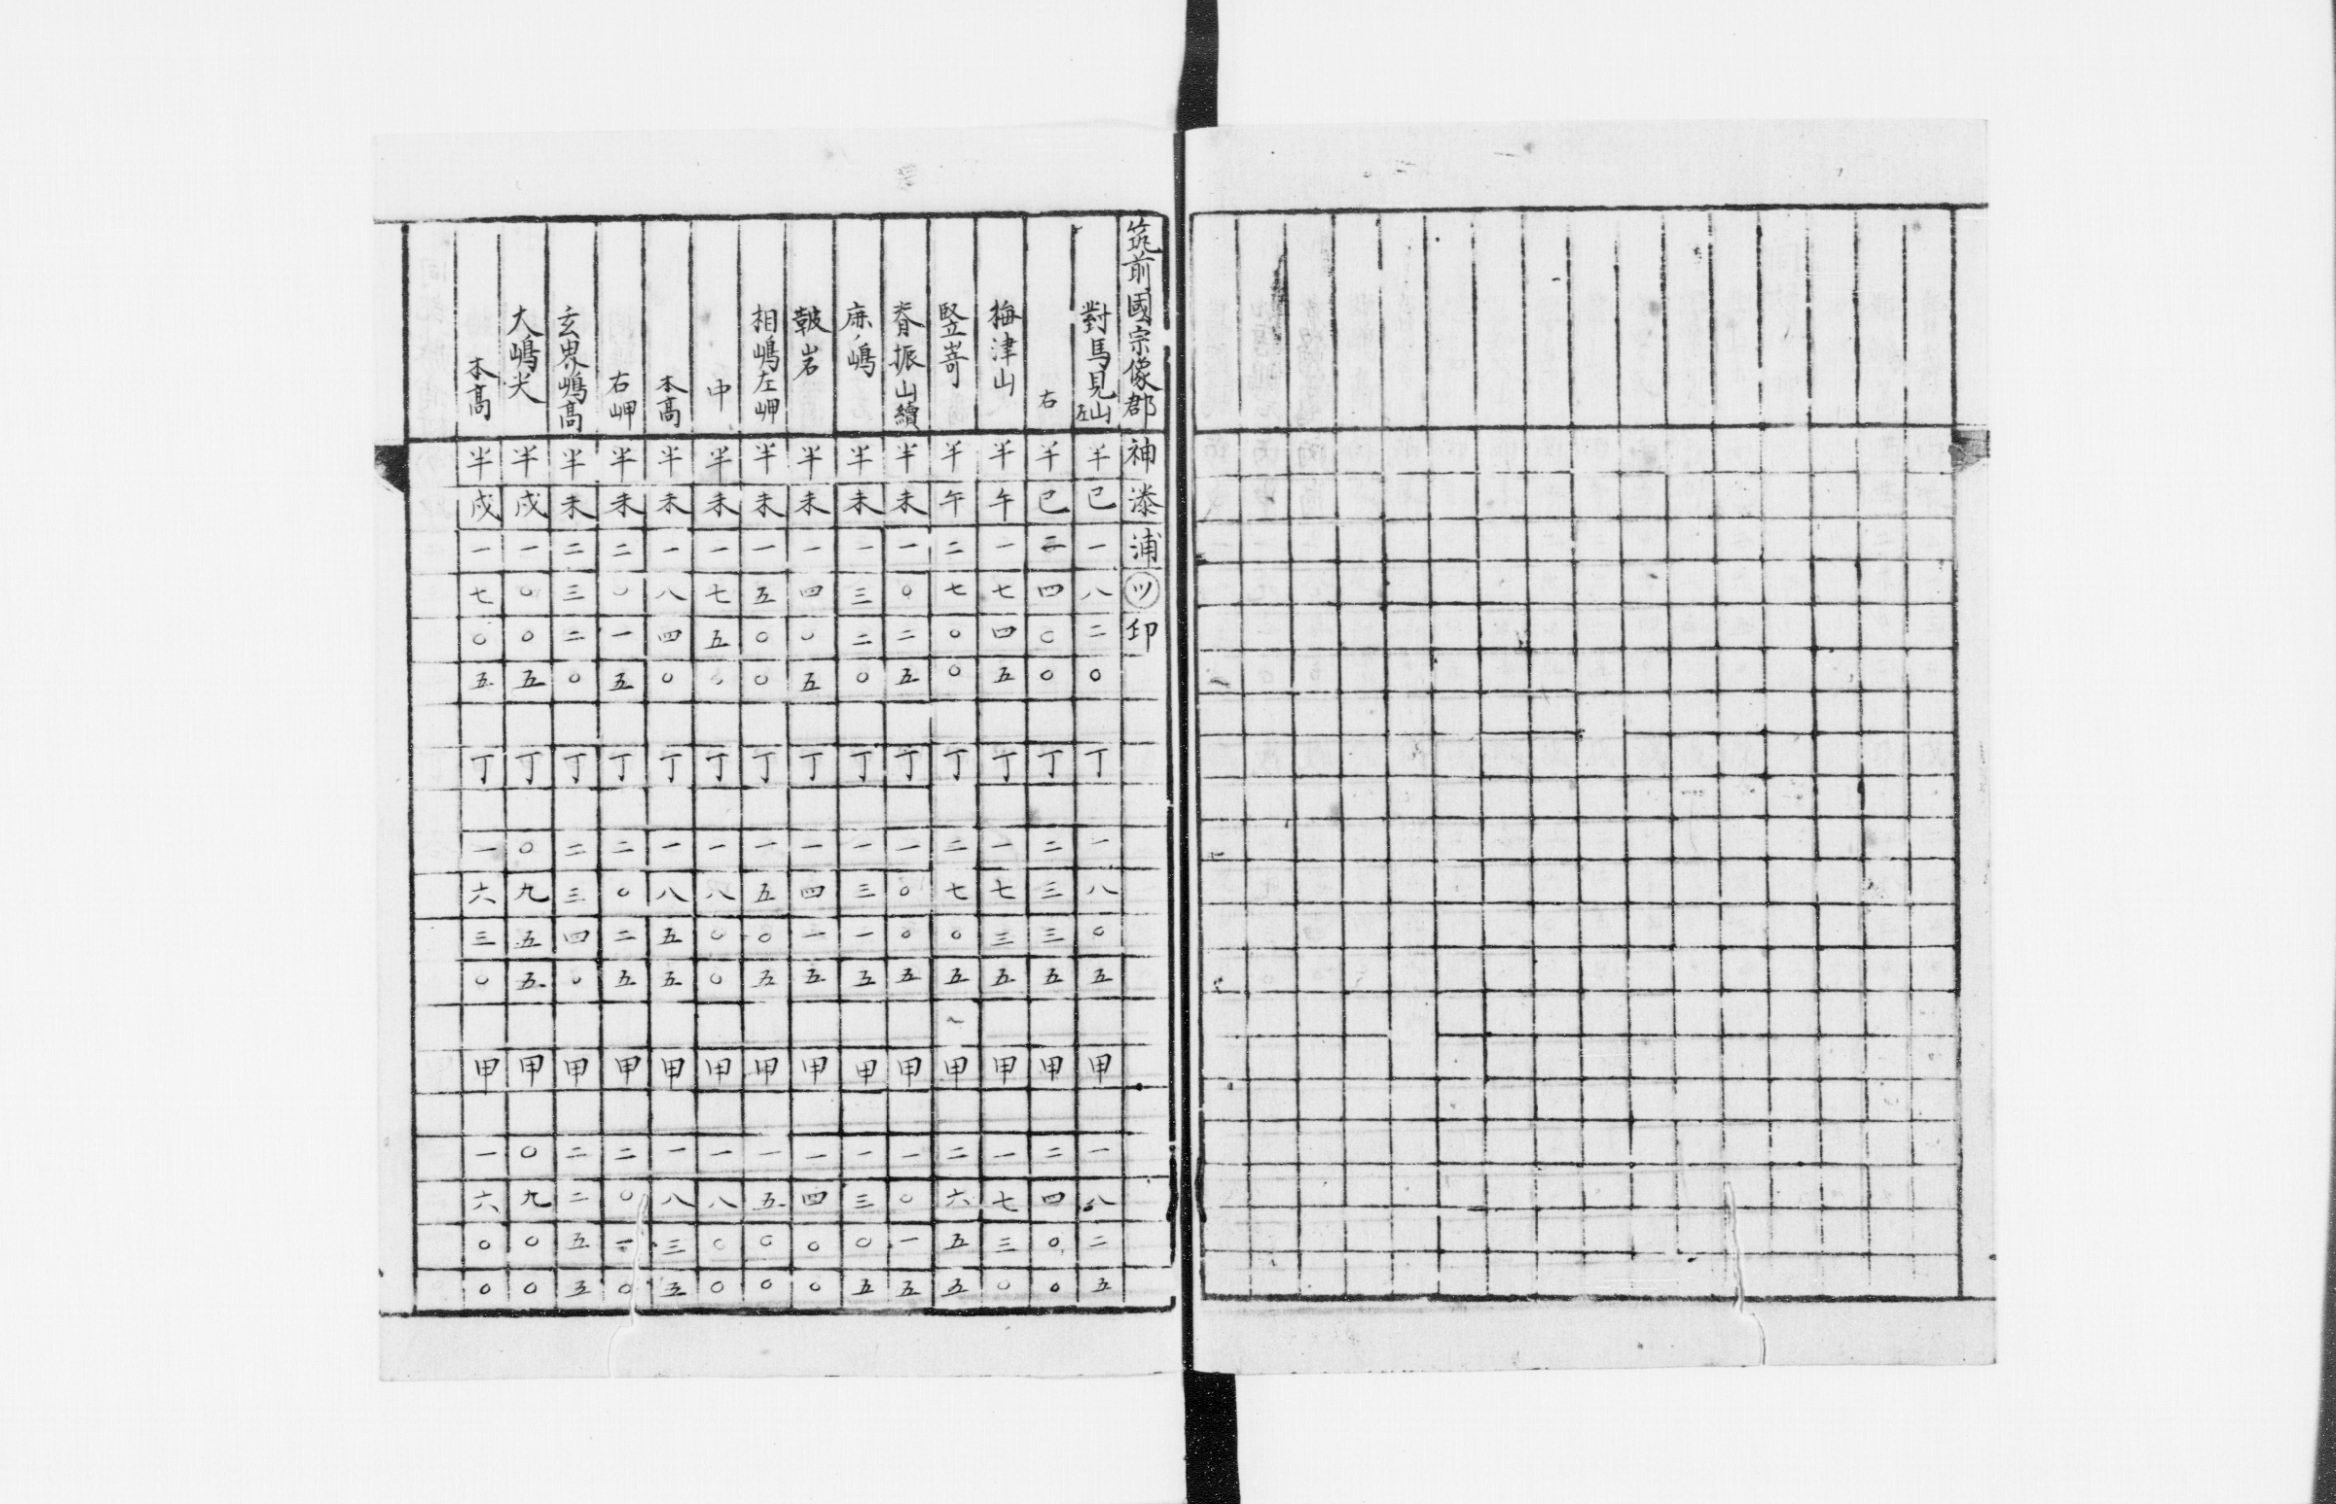 筑前國宗像郡神湊浦ツ印
對馬見山左 半巳一八二〇 丁一八〇五 甲一八二五
右 半巳二四〇〇 丁二三三五 甲二四〇〇
梅津山 半午一七四五 丁一七三五 甲一七三〇
竪嵜 半午二七〇〇 丁二七〇五 甲二六五五
脊振山續 半未一〇二五 丁一〇〇五 甲一〇一五
鹿ノ嶋 半未一三二〇 丁一三一五 甲一三〇五
鞁岩 半未一四〇五 丁一四一五 甲一四〇〇
相嶋左岬 半未一五〇〇 丁一五〇五 甲一五〇〇
中 半未一七五〇 丁一八〇〇 甲一八〇〇
本髙 半未一八四〇 丁一八五五 甲一八三五
右岬 半未二〇一五 丁二〇二五 甲二〇一〇
玄界嶋髙 半未二三二〇 丁二三四〇 甲二二五五
大嶋尖 半戌一〇〇五 丁〇九五五 甲〇九〇〇
本髙 半戌一七〇五 丁一六三〇 甲一六〇〇